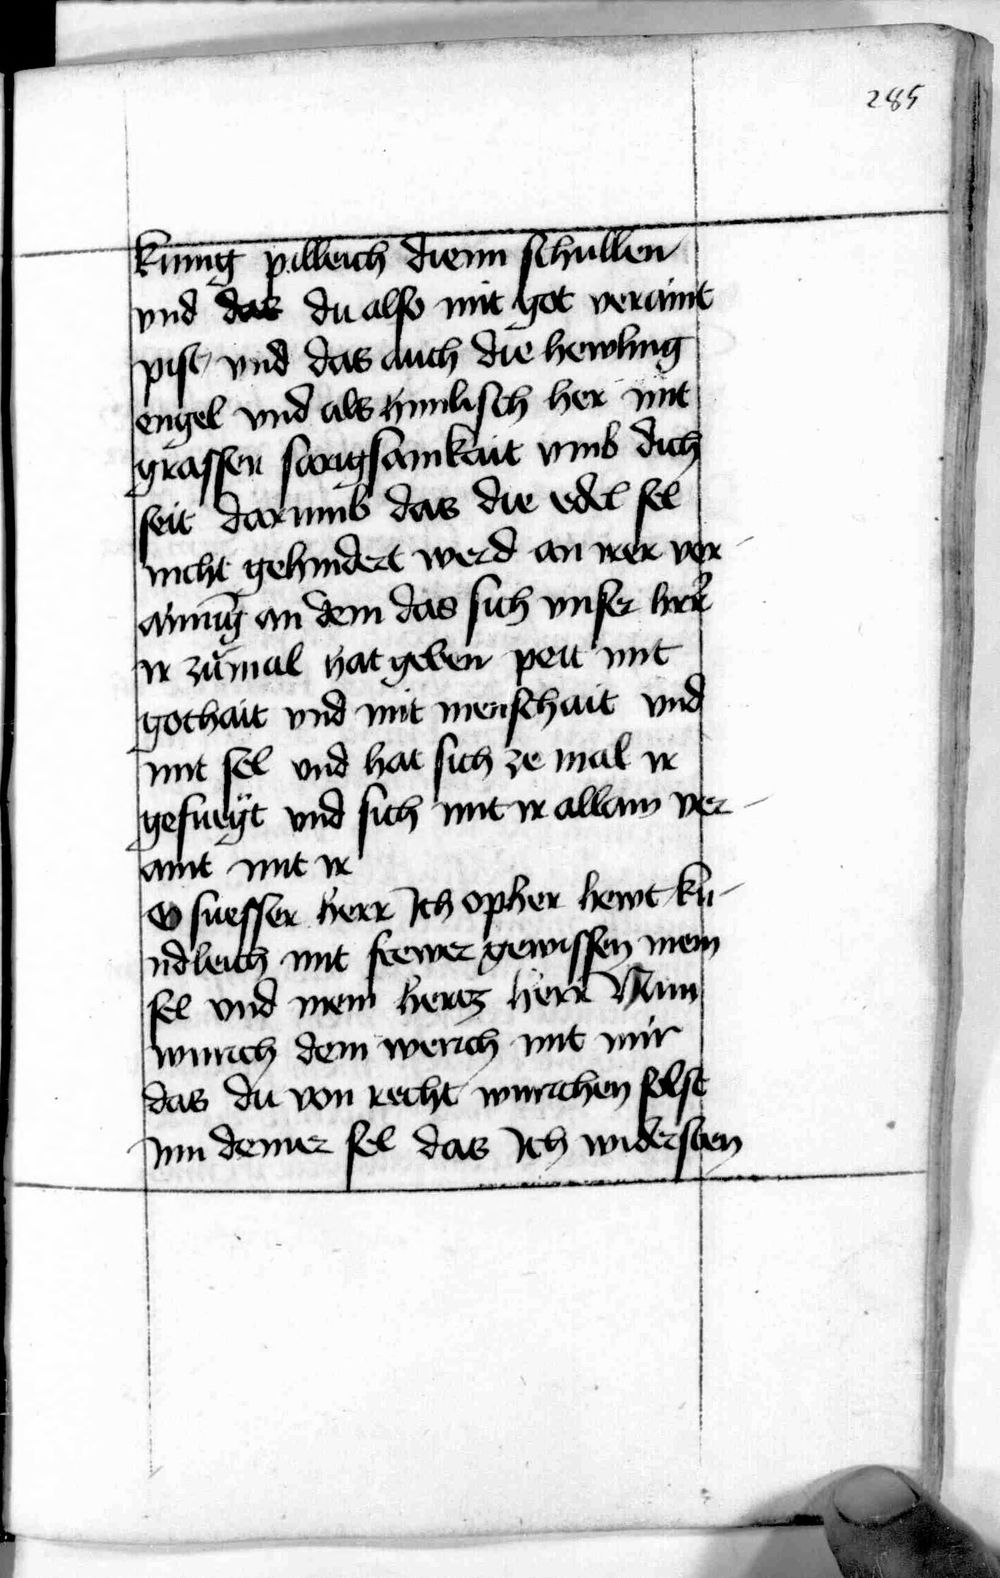 285
kunig pilleich dienn schullen
vnd das du also mit got veraint
pist vnd das auch die hewling
engel vnd als himlisch her mit
grassen sarigsamkait vmb dich
seit darumb das die edel sel
nicht gehindert werd an irer ver-
ainūg an dem das sich vnser herr
ir zumal hat geben peit mit
gothait vnd mit menschait vnd
mit sel vnd hat sich ze mal ir
gefuegt vnd sich mit ir allain ver-
aint mit ir
O suesser herr Ich opher hewt ku-
ndleich mit freier gewissen mein
sel vnd mein hertz herr Nim
wurch dein werich mit mir
das du von recht wurchen solst
inn deiner sel das Ich widersten